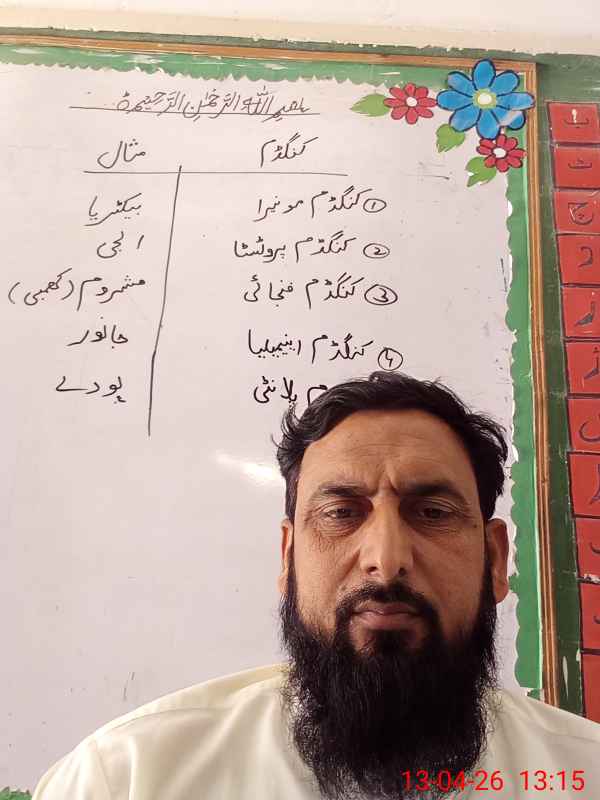 بسم اللہ الرحمٰن الرحیم
کنگڈم مثال
① کنگڈم مونیرا بیکٹریا
② کنگڈم پروٹسٹا الجی
③ کنگڈم فنجائی مشروم (کھمبی)
④ کنگڈم اینیمیلیا جانور
پلانٹی پودے
ب
ث
چ
د
13-04-26 13:15